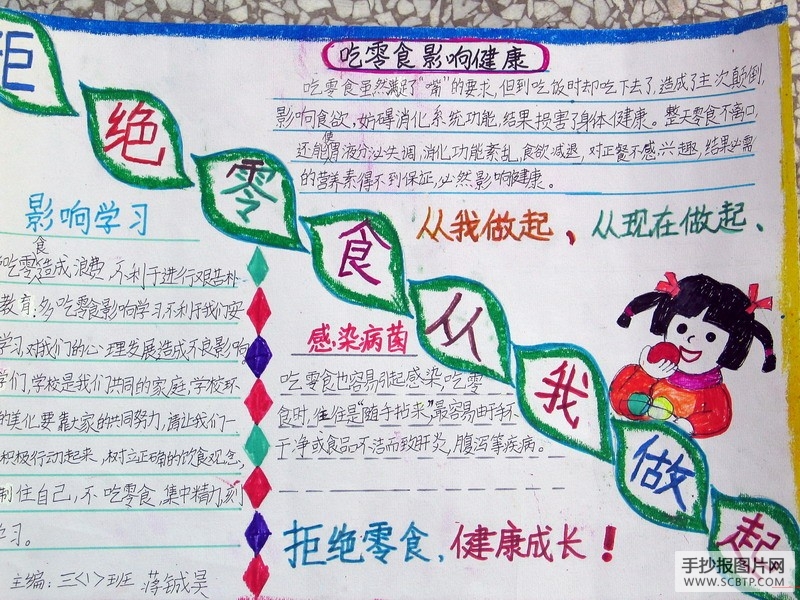 拒绝零食从我做起
吃零食影响健康
吃零食虽然满足了"嘴"的要求,但到吃饭时却吃下去了,造成了主次颠倒,
影响食欲,妨碍消化系统功能,结果损害了身体健康。整天零食不离口,
还能使胃液分泌失调,消化功能紊乱,食欲减退,对正餐不感兴趣,结果必需
的营养素得不到保证,必然影响健康。
从我做起、从现在做起、
影响学习
吃零食造成浪费,不利于进行艰苦朴
教育.多吃零食影响学习,不利于我们安
学习,对我们的心理发展造成不良影响
学们,学校是我们共同的家庭,学校环
的美化要靠大家的共同努力,请让我们一
积极行动起来,树立正确的饮食观念,
制住自己,不吃零食,集中精力,刻
学习。
主编:三<1>班 蒋铖昊
感染病菌
吃零食也容易引起感染,吃零
食时,往住是"随手拈来",最容易由于不
干净或食品不洁而致肝炎,腹泻等疾病。
拒绝零食,健康成长!
手抄报图片网
WWW.SCBTP.COM